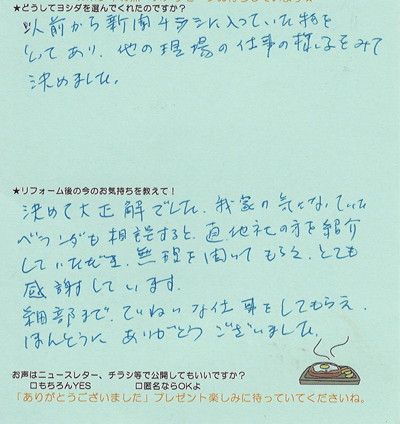 ★どうしてヨシダを選んでくれたのですか？
以前から新聞チラシに入っていた物を
とてあり、他の現場の仕事の様子をみて
決めました。
★リフォーム後の今のお気持ちを教えて！
決めて大正解でした。我家の気になっていた
ベランダも相談すると、直、他社の方を紹介
していただき、無理を聞いてもらえ、とても
感謝しています。
細部まで、ていねいな仕事をしてもらえ、
ほんとうに ありがとう ございました。
お声はニュースレター、チラシ等で公開してもいいですか？
□もちろんYES □匿名ならOKよ
「ありがとうございました」プレゼント楽しみに待っていてくださいね。